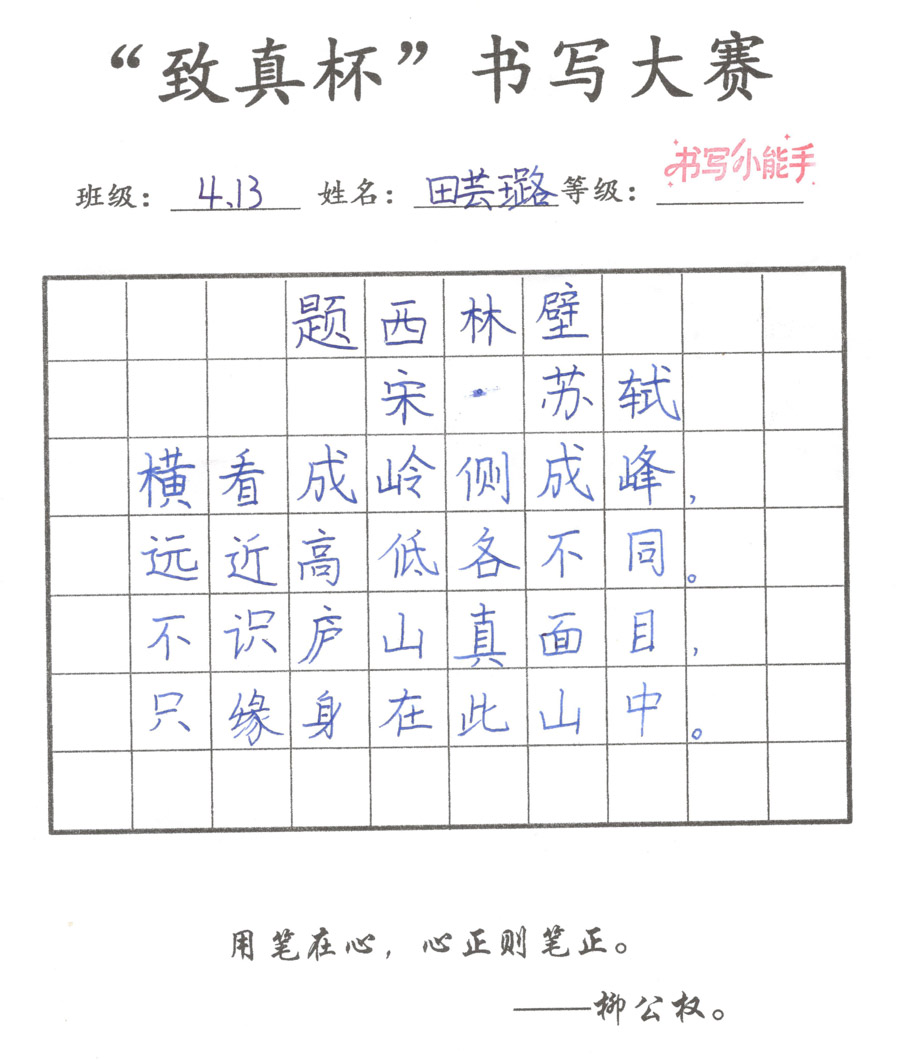 “致真杯”书写大赛
书写小能手
班级：4.13 姓名：田芸璐 等级：
题西林壁
宋·苏轼
横看成岭侧成峰，
远近高低各不同。
不识庐山真面目，
只缘身在此山中。
用笔在心，心正则笔正。
——柳公权。